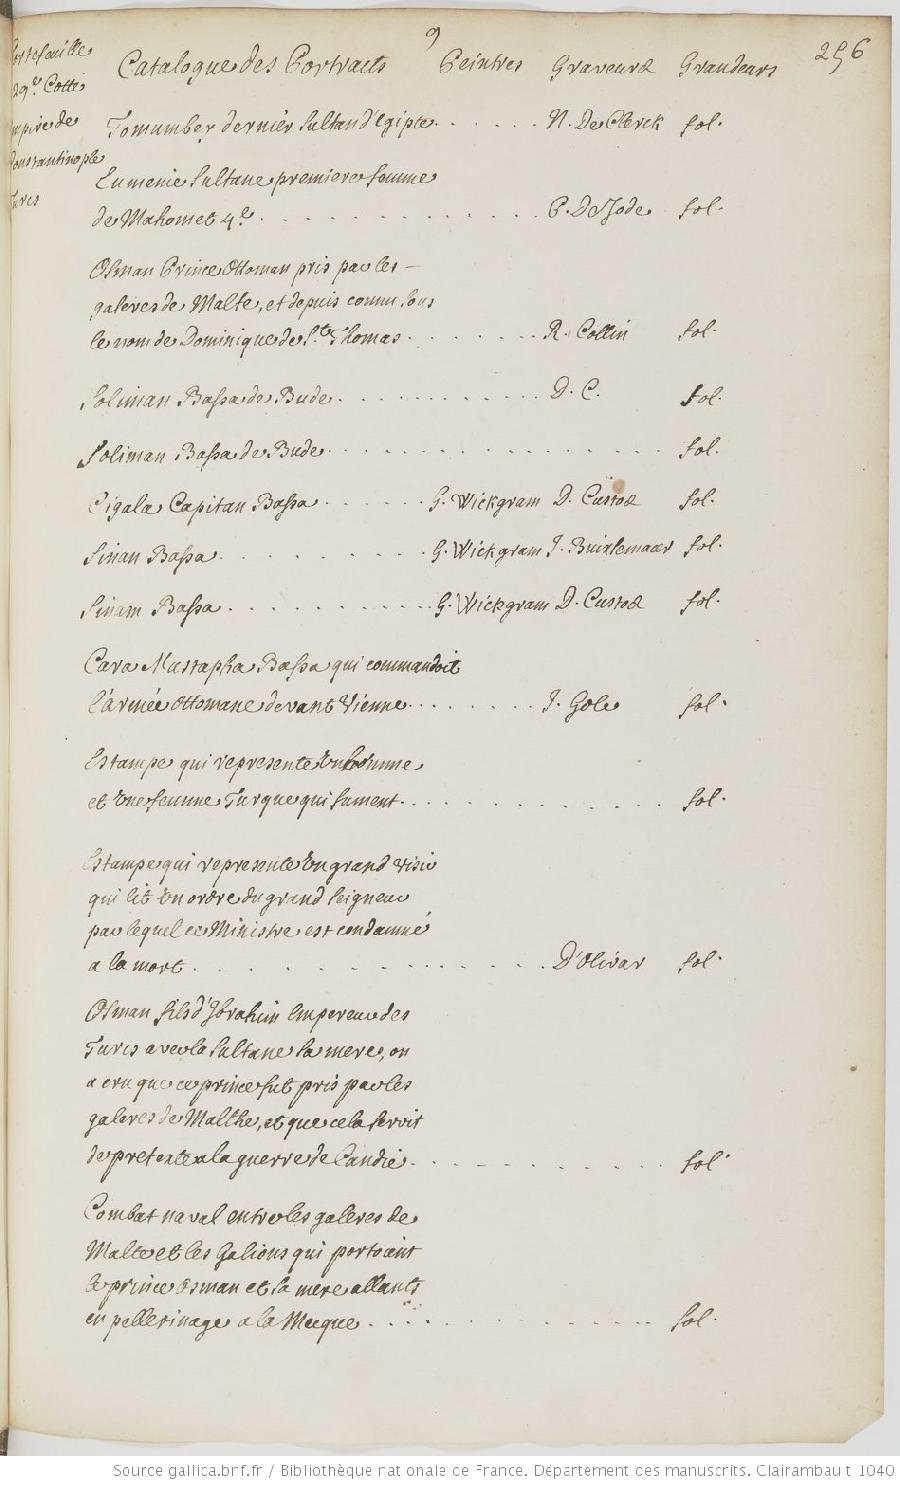 9
256
Portefeuille
29.e Cotté
Empire de
Constantinople
Turcs
Catalogue des Portraits Peintres Graveurs Grandeurs
Tomumbey dernier Sultan d'Egipte. . . . . . N. De Clerck fol.
Eumenie Sultane premiere femme
de Mahomet 4.e . . . . . . . . . . P. De Jode fol.
Osman Prince Ottoman pris par les –
galeres de Malte, et depuis connu sous
le nom de Dominique de St. Thomas. . . . . . R. Collin fol.
Soliman Bassa de Bude . . . . . . . . . . D. C. fol.
Soliman Bassa de Bude . . . . . . . . . . . . . . . . fol.
Cigala Capitan Bassa . . . . . . G. Wickgram D. Custos fol.
Sinan Bassa . . . . . . . . . . G. Wickgram J. fol.
Sinam Bassa . . . . . . . . . . G. Wickgram D. Custos fol.
Cara Mustapha Bassa qui commandoit
l'armée ottomane devant Vienne . . . . . . . J. Gole fol.
Estampe qui represente Un homme
et Une femme Turque qui fument . . . . . . . . . . . fol.
Estampe qui represente Un grand Visir
qui lit Un ordre du grand Seigneur
par lequel ce Ministre est condamné
a la mort . . . . . . . . . . . . . . . D'Olivar fol.
Osman fils d'Ibrahim Empereur des
Turcs avec la Sultane sa mere, on
a cru que ce prince fut pris par les
galeres de Malthe, et que cela servit
de pretexte a la guerre de Candie . . . . . . . . . . fol.
Combat naval entre les galeres de
Malte et les Galions qui portoient
le prince Osman et la mere allants
en pellerinage a la Mecque . . . . . . . . . . . . . fol.
Source gallica.bnf.fr / Bibliothèque nationale de France. Département des manuscrits. Clairambault 1040